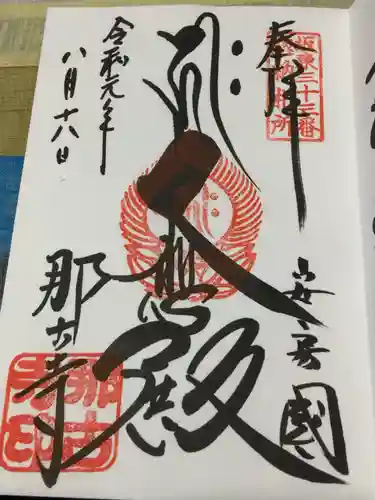 奉拝
坂東三十三番
結願所
安房国
大悲殿
令和元年
八月十八日
那古寺
那古
寺印